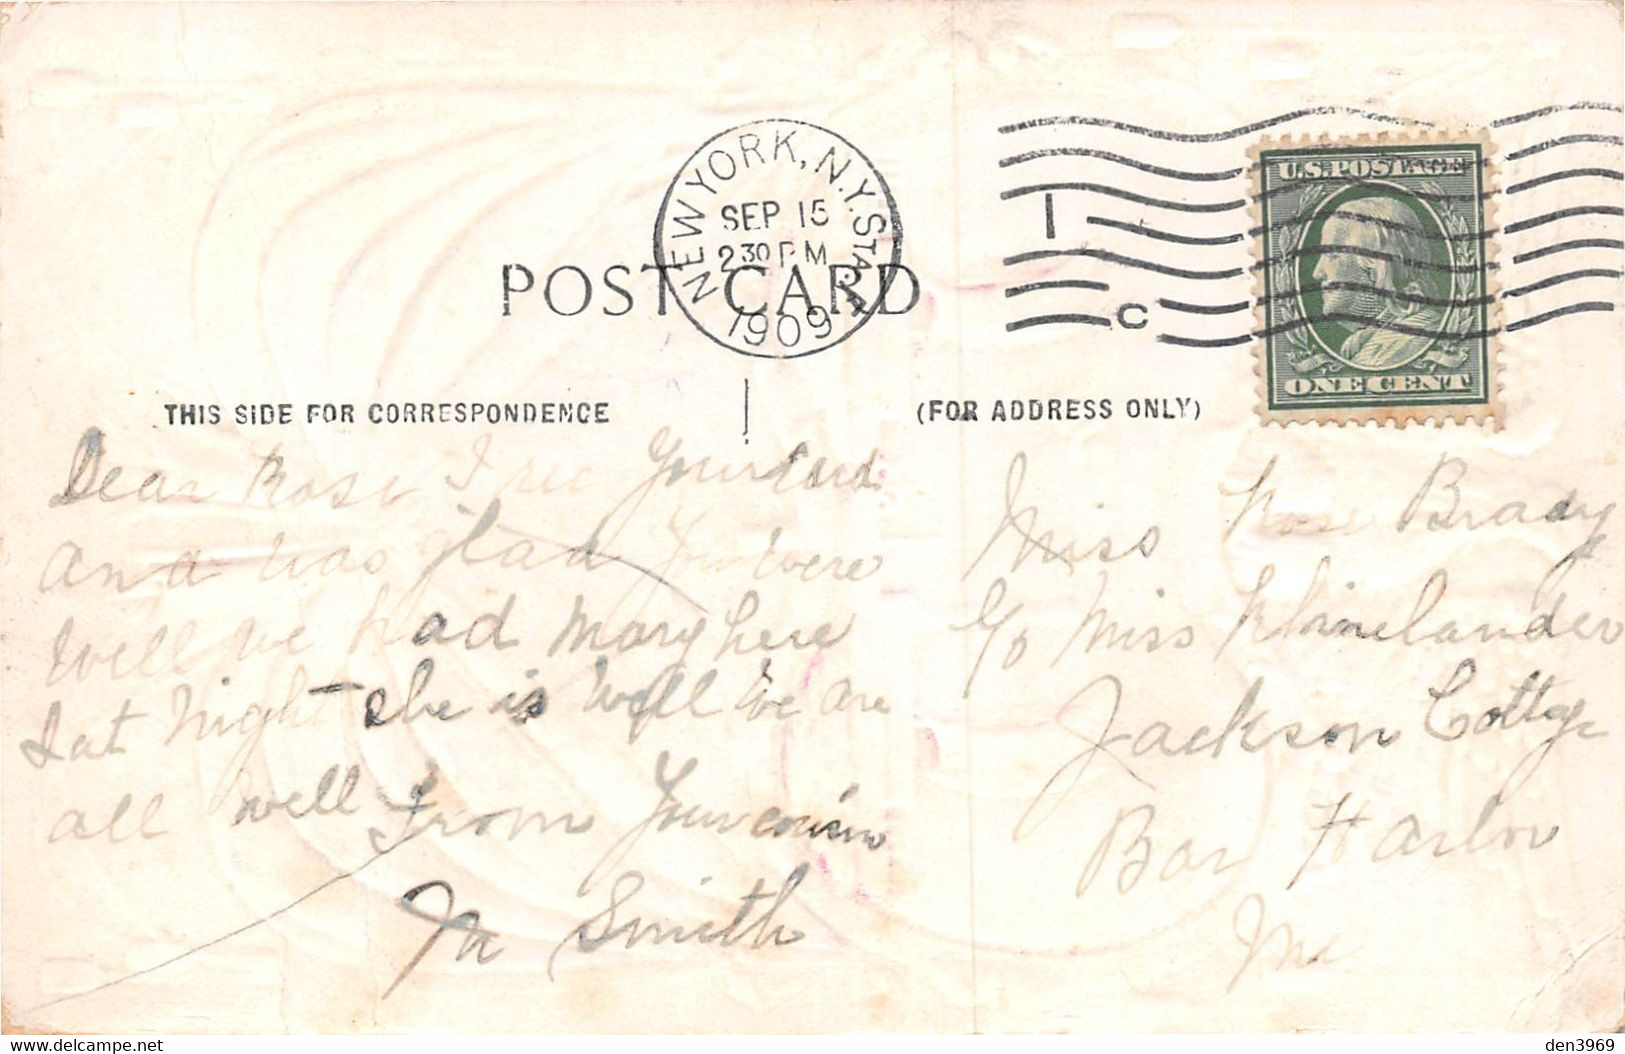 NEW YORK, N.Y. STA.
SEP 15
2 30 PM
1909
1
C
U.S. POSTAGE
ONE CENT
POST CARD
THIS SIDE FOR CORRESPONDENCE
(FOR ADDRESS ONLY)
Dear Rose I rec Your Card
and was glad You were
well we had Mary here
Lat Night - she is well we are
all well From Your cousin
M Smith
Miss Rose Brady
c/o Miss Rhinelander
Jackson Cottage
Bar Harbor
Me
www.delcampe.net
den3969